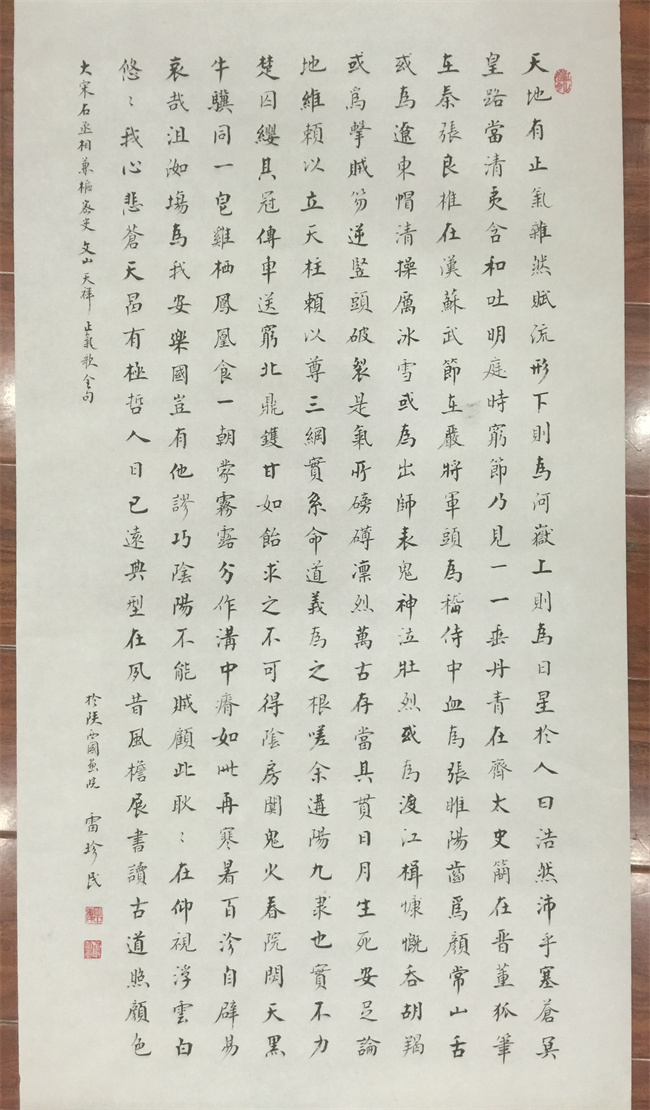 天地有正氣雜然賦流形下則為河嶽上則為日星於人曰浩然沛乎塞蒼冥
皇路當清夷含和吐明庭時窮節乃見一一垂丹青在齊太史簡在晉董狐筆
在秦張良椎在漢蘇武節在嚴將軍頭為嵇侍中血為張睢陽齒爲顏常山舌
或為遼東帽清操厲冰雪或為出師表鬼神泣壯烈或為渡江楫慷慨吞胡羯
或爲擊賊笏逆豎頭破裂是氣所磅礴凜烈萬古存當其貫日月生死安足論
地維賴以立天柱賴以尊三綱實系命道義為之根嗟余遘陽九隸也實不力
楚囚纓其冠傳車送窮北鼎鑊甘如飴求之不可得陰房闃鬼火春院閟天黑
牛驥同一皂雞栖鳳凰食一朝蒙霧露分作溝中瘠如此再寒暑百沴自辟易
哀哉沮洳場為我安樂國豈有他謬巧陰陽不能賊顧此耿〻在仰視浮雲白
悠〻我心悲蒼天曷有極哲人日已遠典型在夙昔風檐展書讀古道照顏色
大宋右丞相兼樞密史文山天祥正氣歌全句
於陝西國畫院 雷珍民